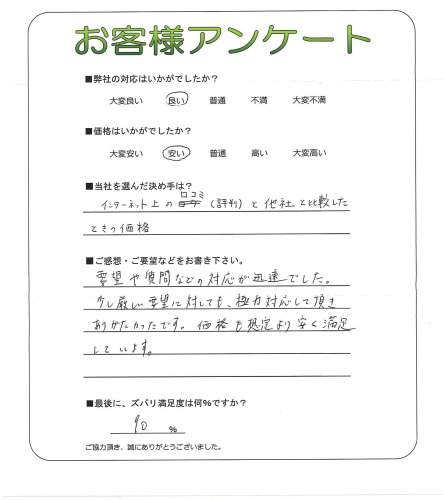 お客様アンケート
■弊社の対応はいかがでしたか?
大変良い 良い 普通 不満 大変不満
■価格はいかがでしたか?
大変安い 安い 普通 高い 大変高い
■当社を選んだ決め手は?
口コミ
インターネット上の (評判)と他社と比較した
ときの価格
■ご感想・ご要望などをお書き下さい。
要望や質問などの対応が迅速でした。
少し厳しい要望に対しても、極力対応して頂き
ありがたかったです。価格も想定より安く満足
しています。
■最後に、ズバリ満足度は何%ですか?
90 %
ご協力頂き、誠にありがとうございました。